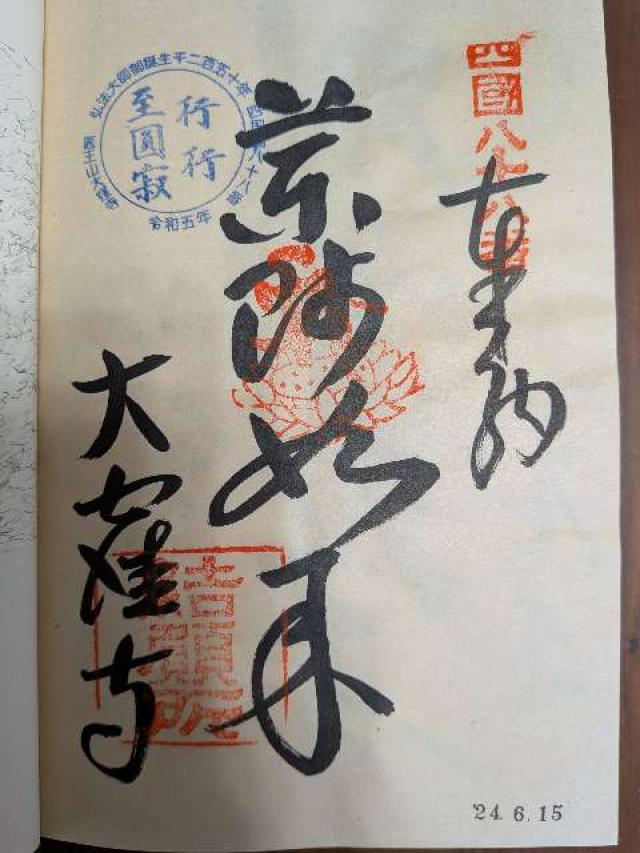 四國八十八番
奉納
薬師如来
大窪寺
結願所
弘法大師御誕生千二百五十年
四国第八十八番
令和五年
医王山大窪寺
行行
至圓寂
'24. 6.15